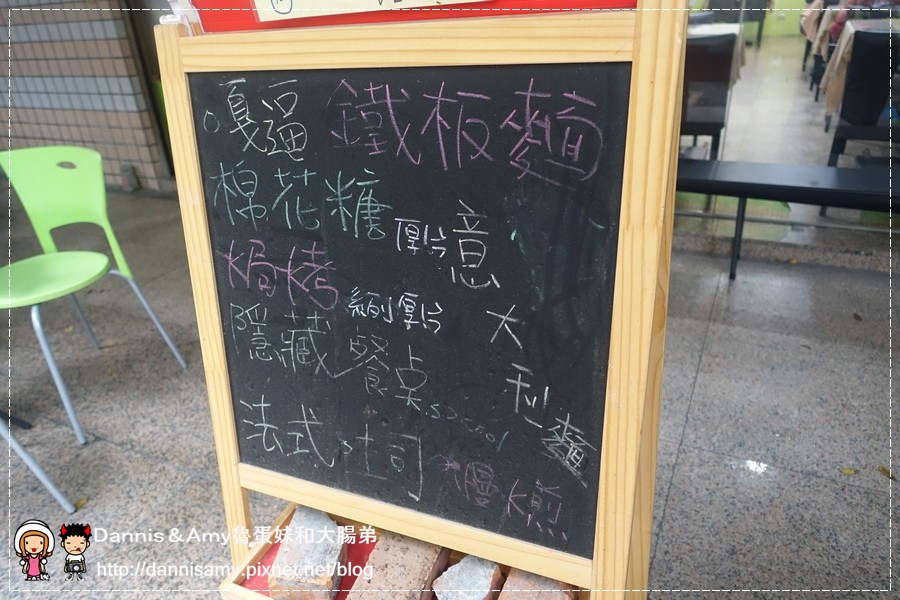 嘎逼 鐵板麵
棉花糖
厚片
意大利麵
焗烤
厚片
隱藏餐点
法式吐司
慢煎
Dannis & Amy魯蛋妹和大腸弟
http://dannisamy.pixnet.net/blog